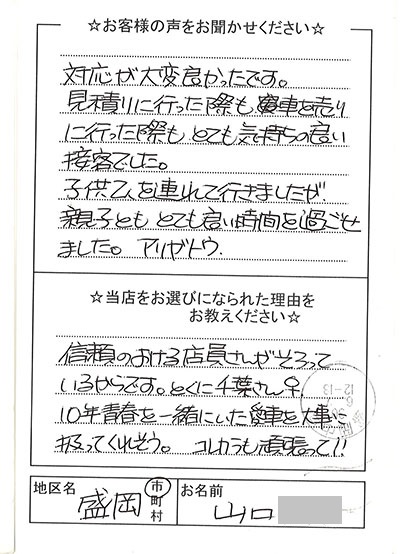 ☆お客様の声をお聞かせください☆
対応が大変良かったです。
見積りに行った際も愛車を売り
に行った際もとても気持ちの良い
接客でした。
子供2人を連れて行きましたが、
親子ともとても良い時間を過ごせ
ました。アリガトウ.
☆当店をお選びになられた理由を
お教えください☆
信頼のおける店員さんがそろって
いるからです。とくに千葉さん♀
10年青春を一緒にいた愛車を大事に
扱ってくれそう。コレカラも頑張って!!
地区名
盛岡
市
町
村
お名前
山口
12-13